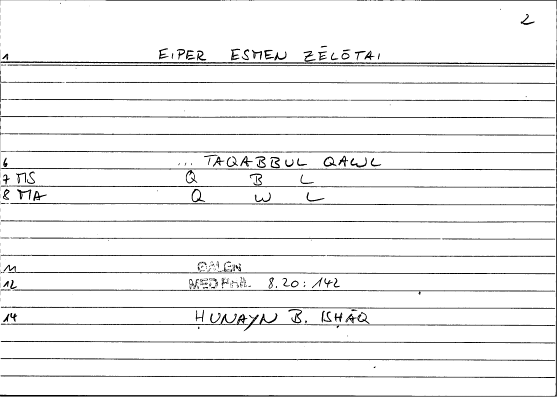 2
1 EIPER ESMEN ZĒLŌTAI
6 ... TAQABBUL QAWL
7 MS Q B L
8 MA Q W L
11 GALEN
12 MED PHIL. 8.20: 142
14 ḤUNAYN B. ISḤĀQ